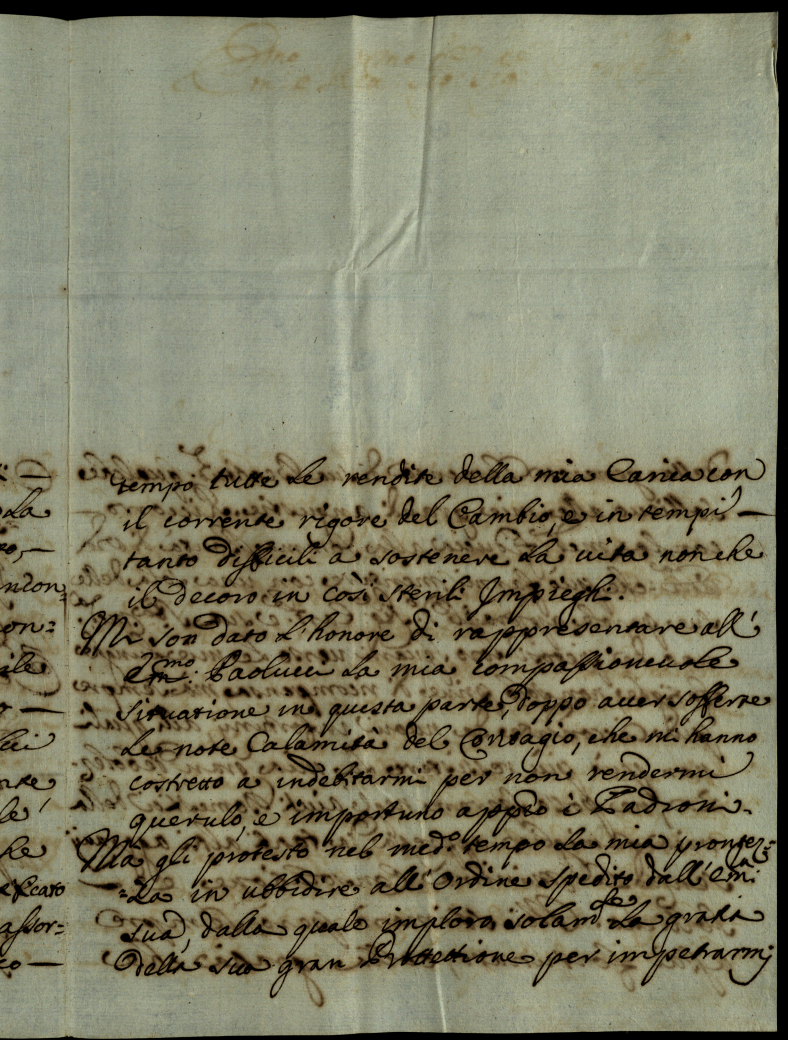 tempo tutte le rendite della mia Carica con
il corrente rigore del Cambio, e in tempi —
tanto difficili a sostenere la vita non che
il decoro in così sterili Impieghi.
Mi son dato l'honore di rappresentare all'
Em:mo Paolucci la mia compassionevole
situatione in questa parte, doppo aver sofferte
le note Calamità del Contagio, che mi hanno
costretto a indebitarmi per non rendermi
querulo, e importuno appo i Padroni.
Ma gli protesto nel med.o tempo la mia prontez:
=za in ubbidire all'Ordine spedito dall'Em:a
Sua, dalla quale imploro solam.te la gratia
della sua gran Protettione per impetrarmi
la
ncon:
on:
ile
cci
nte
le'
che
assor:
co —